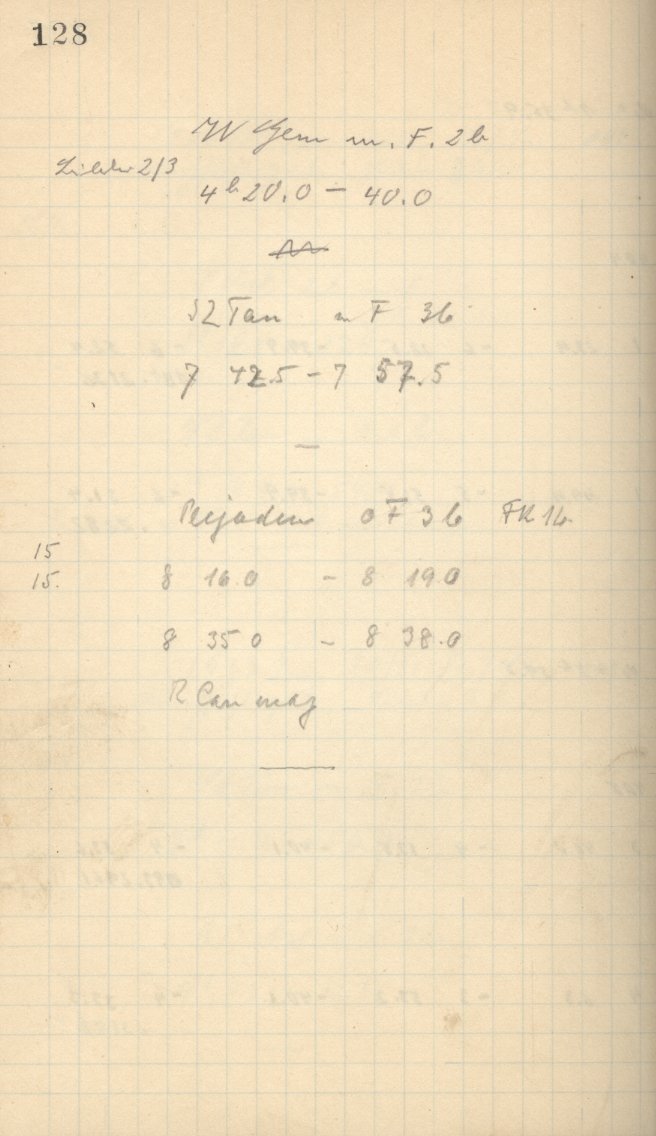 128
W Gem m. F. 2b
2/3
4h 20.0 – 40.0
SZ Tau m F 3b
7 42.5 – 7 57.5
—
Plejaden o F 3b FK 16
15
15. 8 16.0 – 8 19.0
8 35 0 – 8 38.0
R Can maj